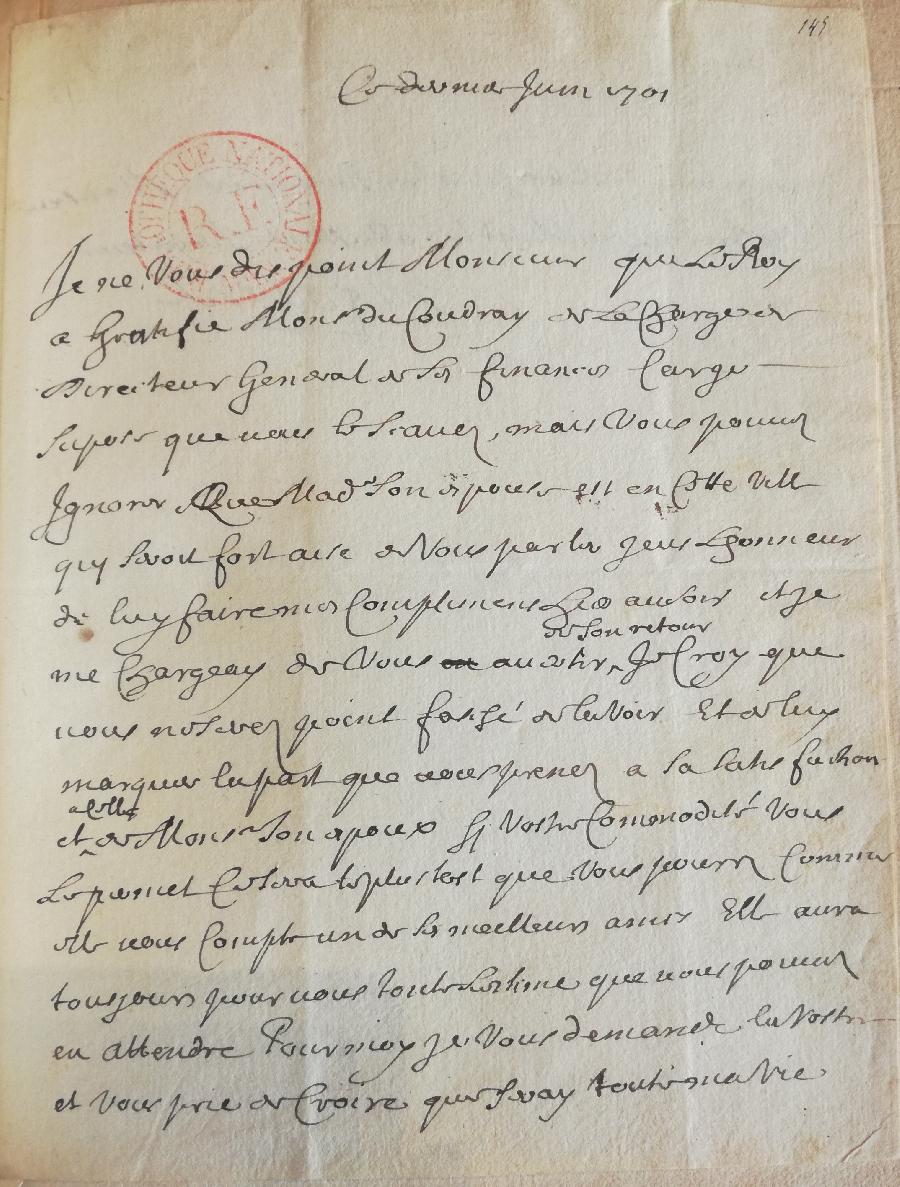 145
Ce dernier Juin 1701
BIBLIOTHEQUE NATIONALE
R.F.
Je ne Vous dis point Monsieur que Le Roy
a Gratifié Monsr du Coudray de La Charge de
Directeur General de Ses finances Car je
Supose que vous le Scavez, mais Vous pouvez
Ignorer Que Made Son Epouse est en Cette Ville
qui Seroit fort aise de Vous parler Jeus Lhonneur
de luy faire mes Complimens hier au Soir et Je
de Son retour
me Chargeay de Vous avertir Je Croy que
vous ne Serez point faché de la Voir Et de luy
marquer la part que vous prenez a Sa Satisfaction
a Celle
et de Monsr Son epoux Sy Vostre Commodité Vous
Le permet Ce Sera le plustost que Vous pourrez Comme
elle vous Compte un de Ses meilleurs amis Elle aura
tousjours pour vous toute Lestime que vous pouvez
en attendre Pour moy Je Vous demande la Vostre
et Vous prie de Croire que Seray toute ma Vie